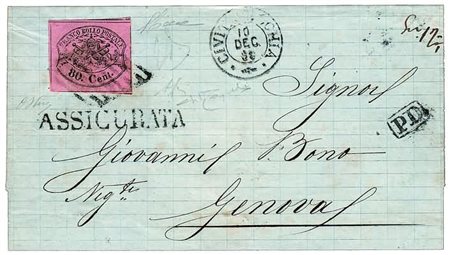 FRANCO BOLLO POSTALE
80. Cent.
CIVITAVECCHIA
10
DEC.
69
ASSICURATA
P.D.
Signor
Giovanni Bono
Negte
Genova